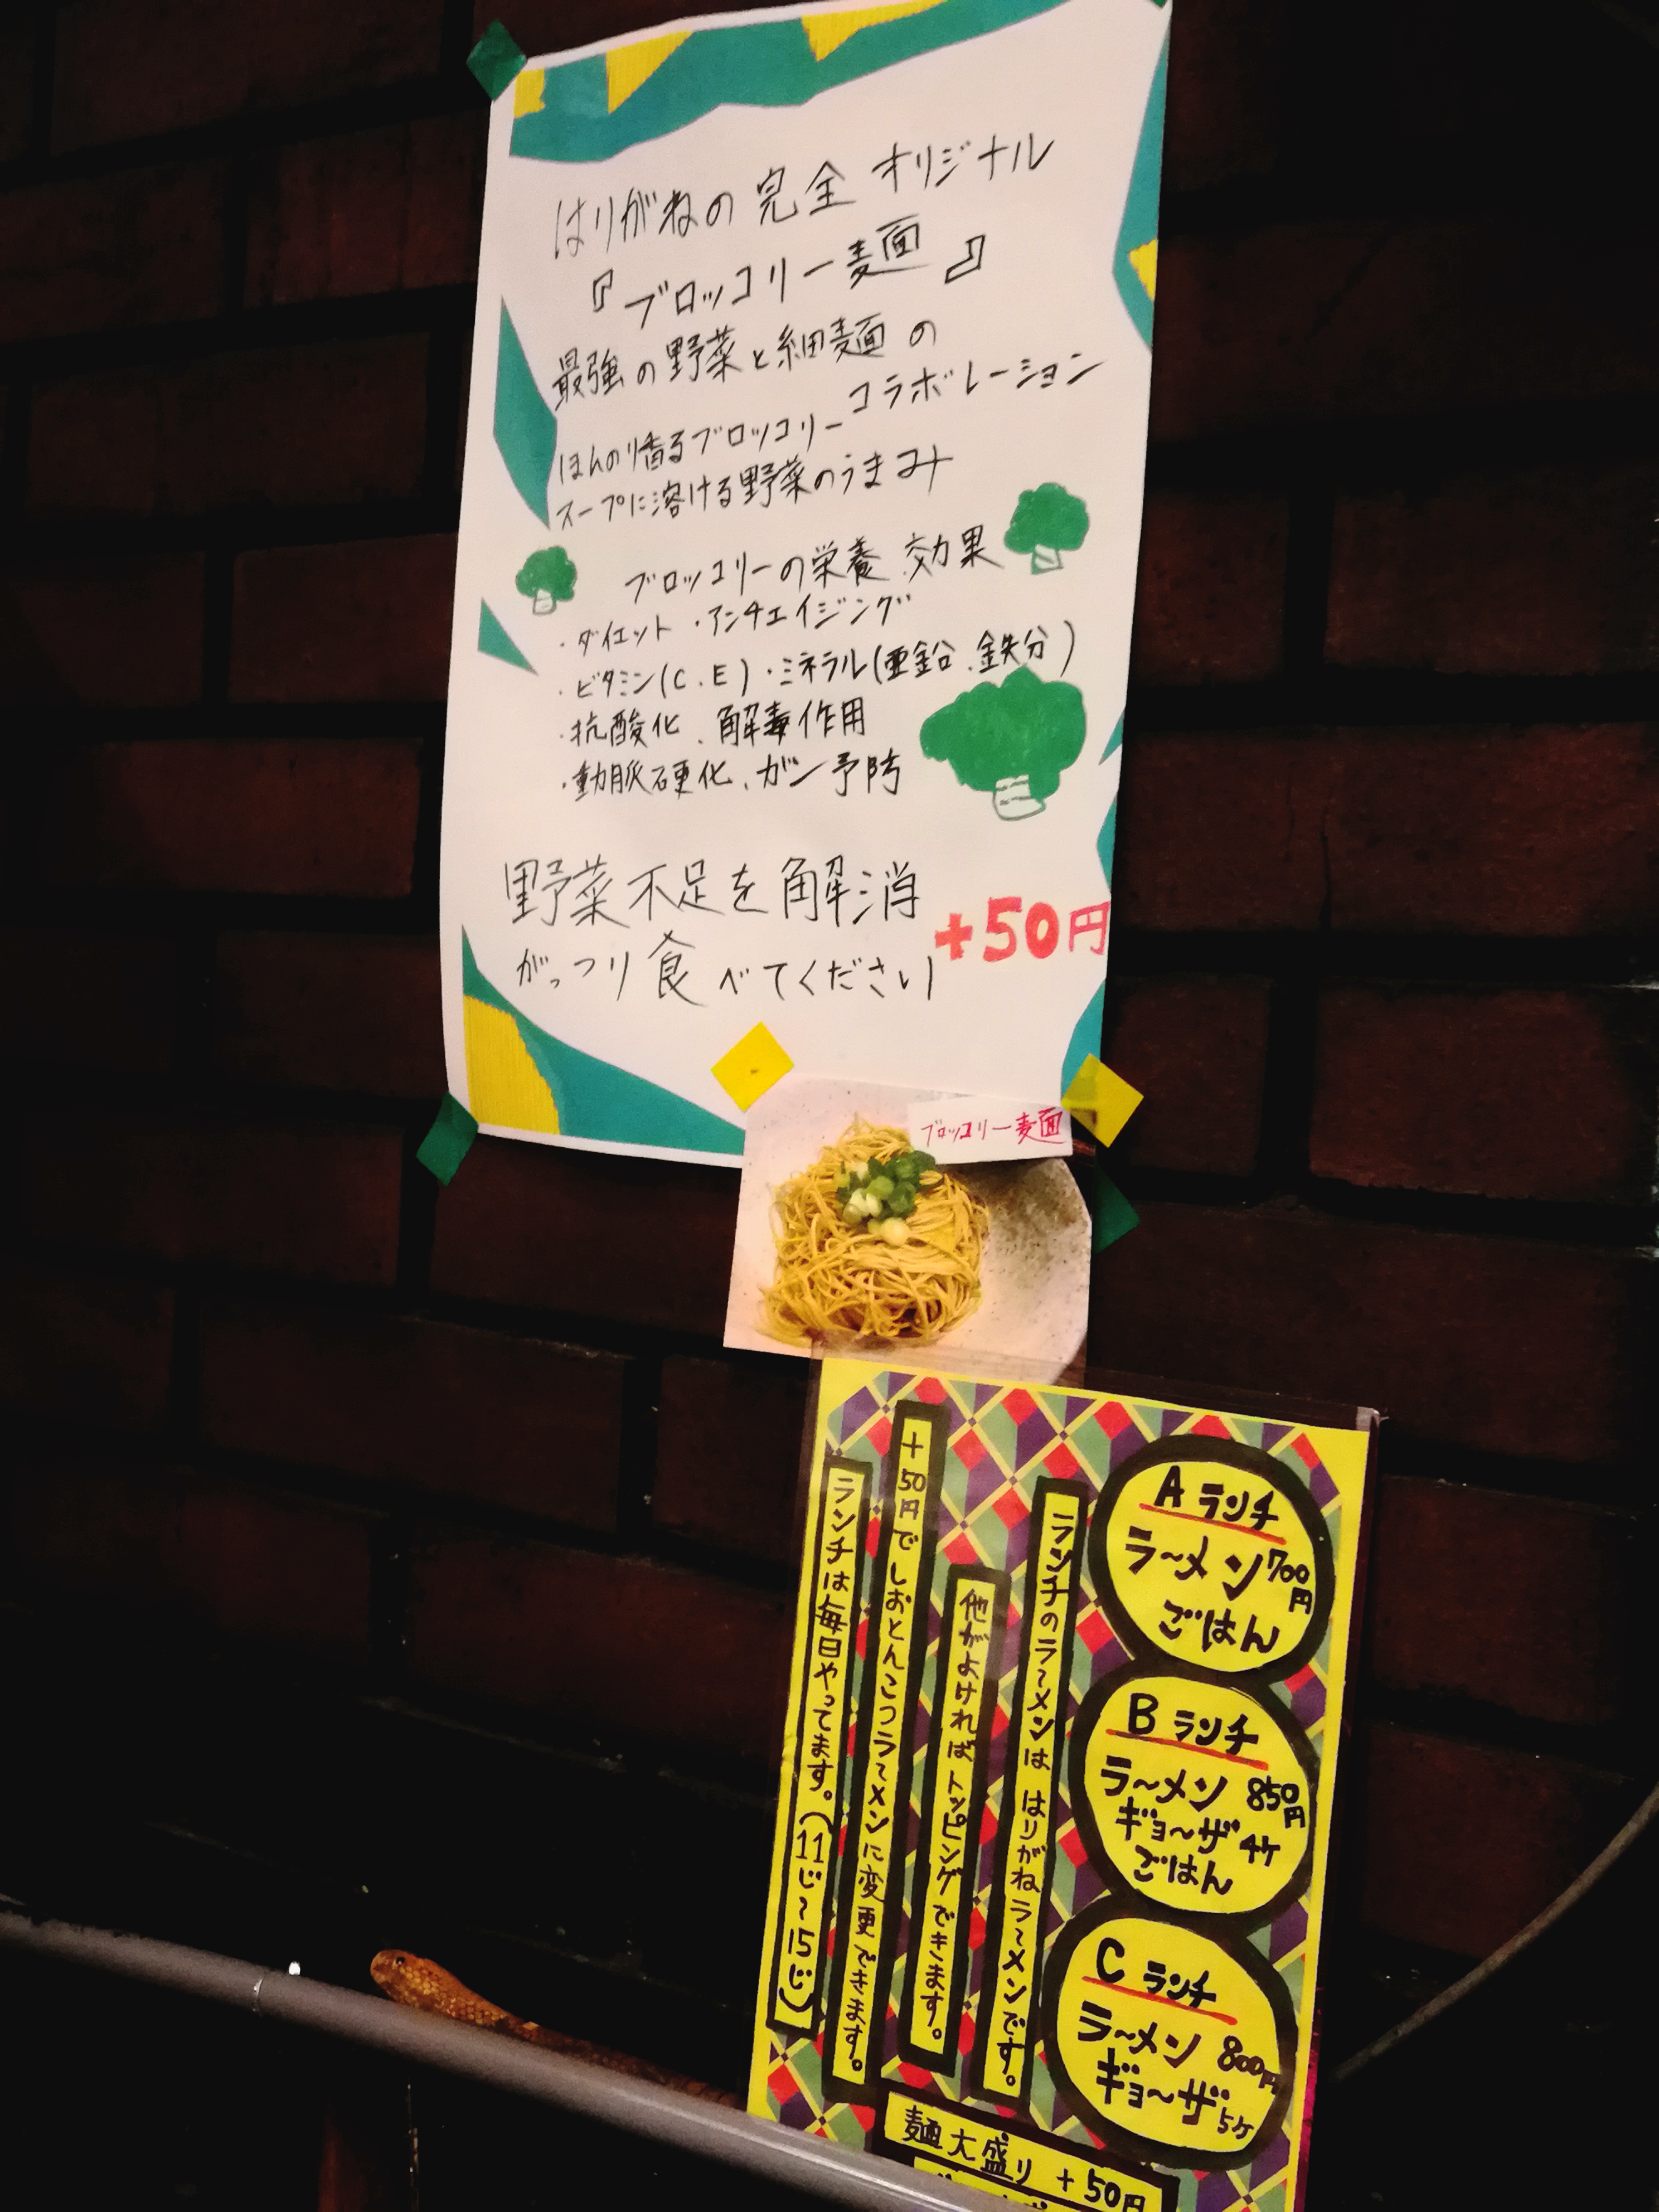 はりがねの完全オリジナル
『ブロッコリー麺』
最強の野菜と細麺の
コラボレーション
ほんのり香るブロッコリー
スープに溶ける野菜のうまみ
ブロッコリーの栄養、効果
・ダイエット ・アンチエイジング
・ビタミン(C、E) ・ミネラル(亜鉛、鉄分)
・抗酸化、解毒作用
・動脈硬化、ガン予防
野菜不足を解消
がっつり食べてください
+50円
ブロッコリー麺
Aランチ
ラ〜メン 700円
ごはん
Bランチ
ラ〜メン 850円
ギョ〜ザ 4ケ
ごはん
Cランチ
ラ〜メン 800円
ギョ〜ザ 5ケ
ランチのラ〜メンは はりがねラ〜メンです。
他がよければトッピングできます。
+50円でしおとんこつラ〜メンに変更できます。
ランチは毎日やってます。(11じ〜15じ)
麺大盛り +50円